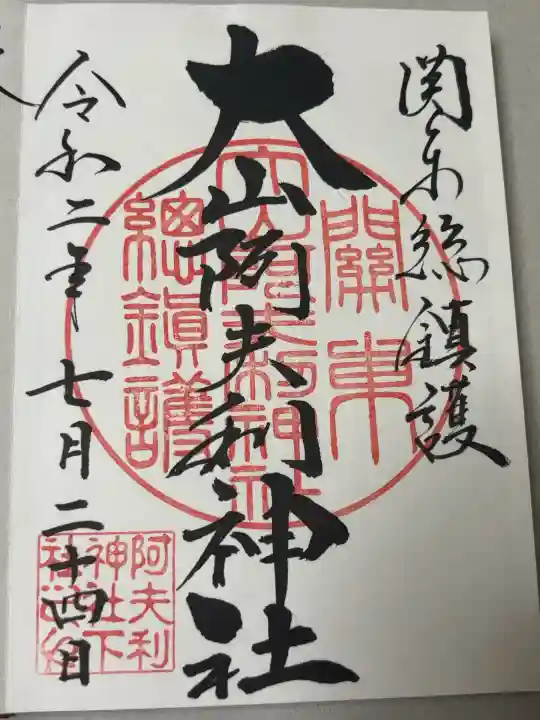 関東総鎮護
大山阿夫利神社
令和二年七月二十四日
關東
大山阿夫利神社
總鎮護
阿夫利
神社下
社